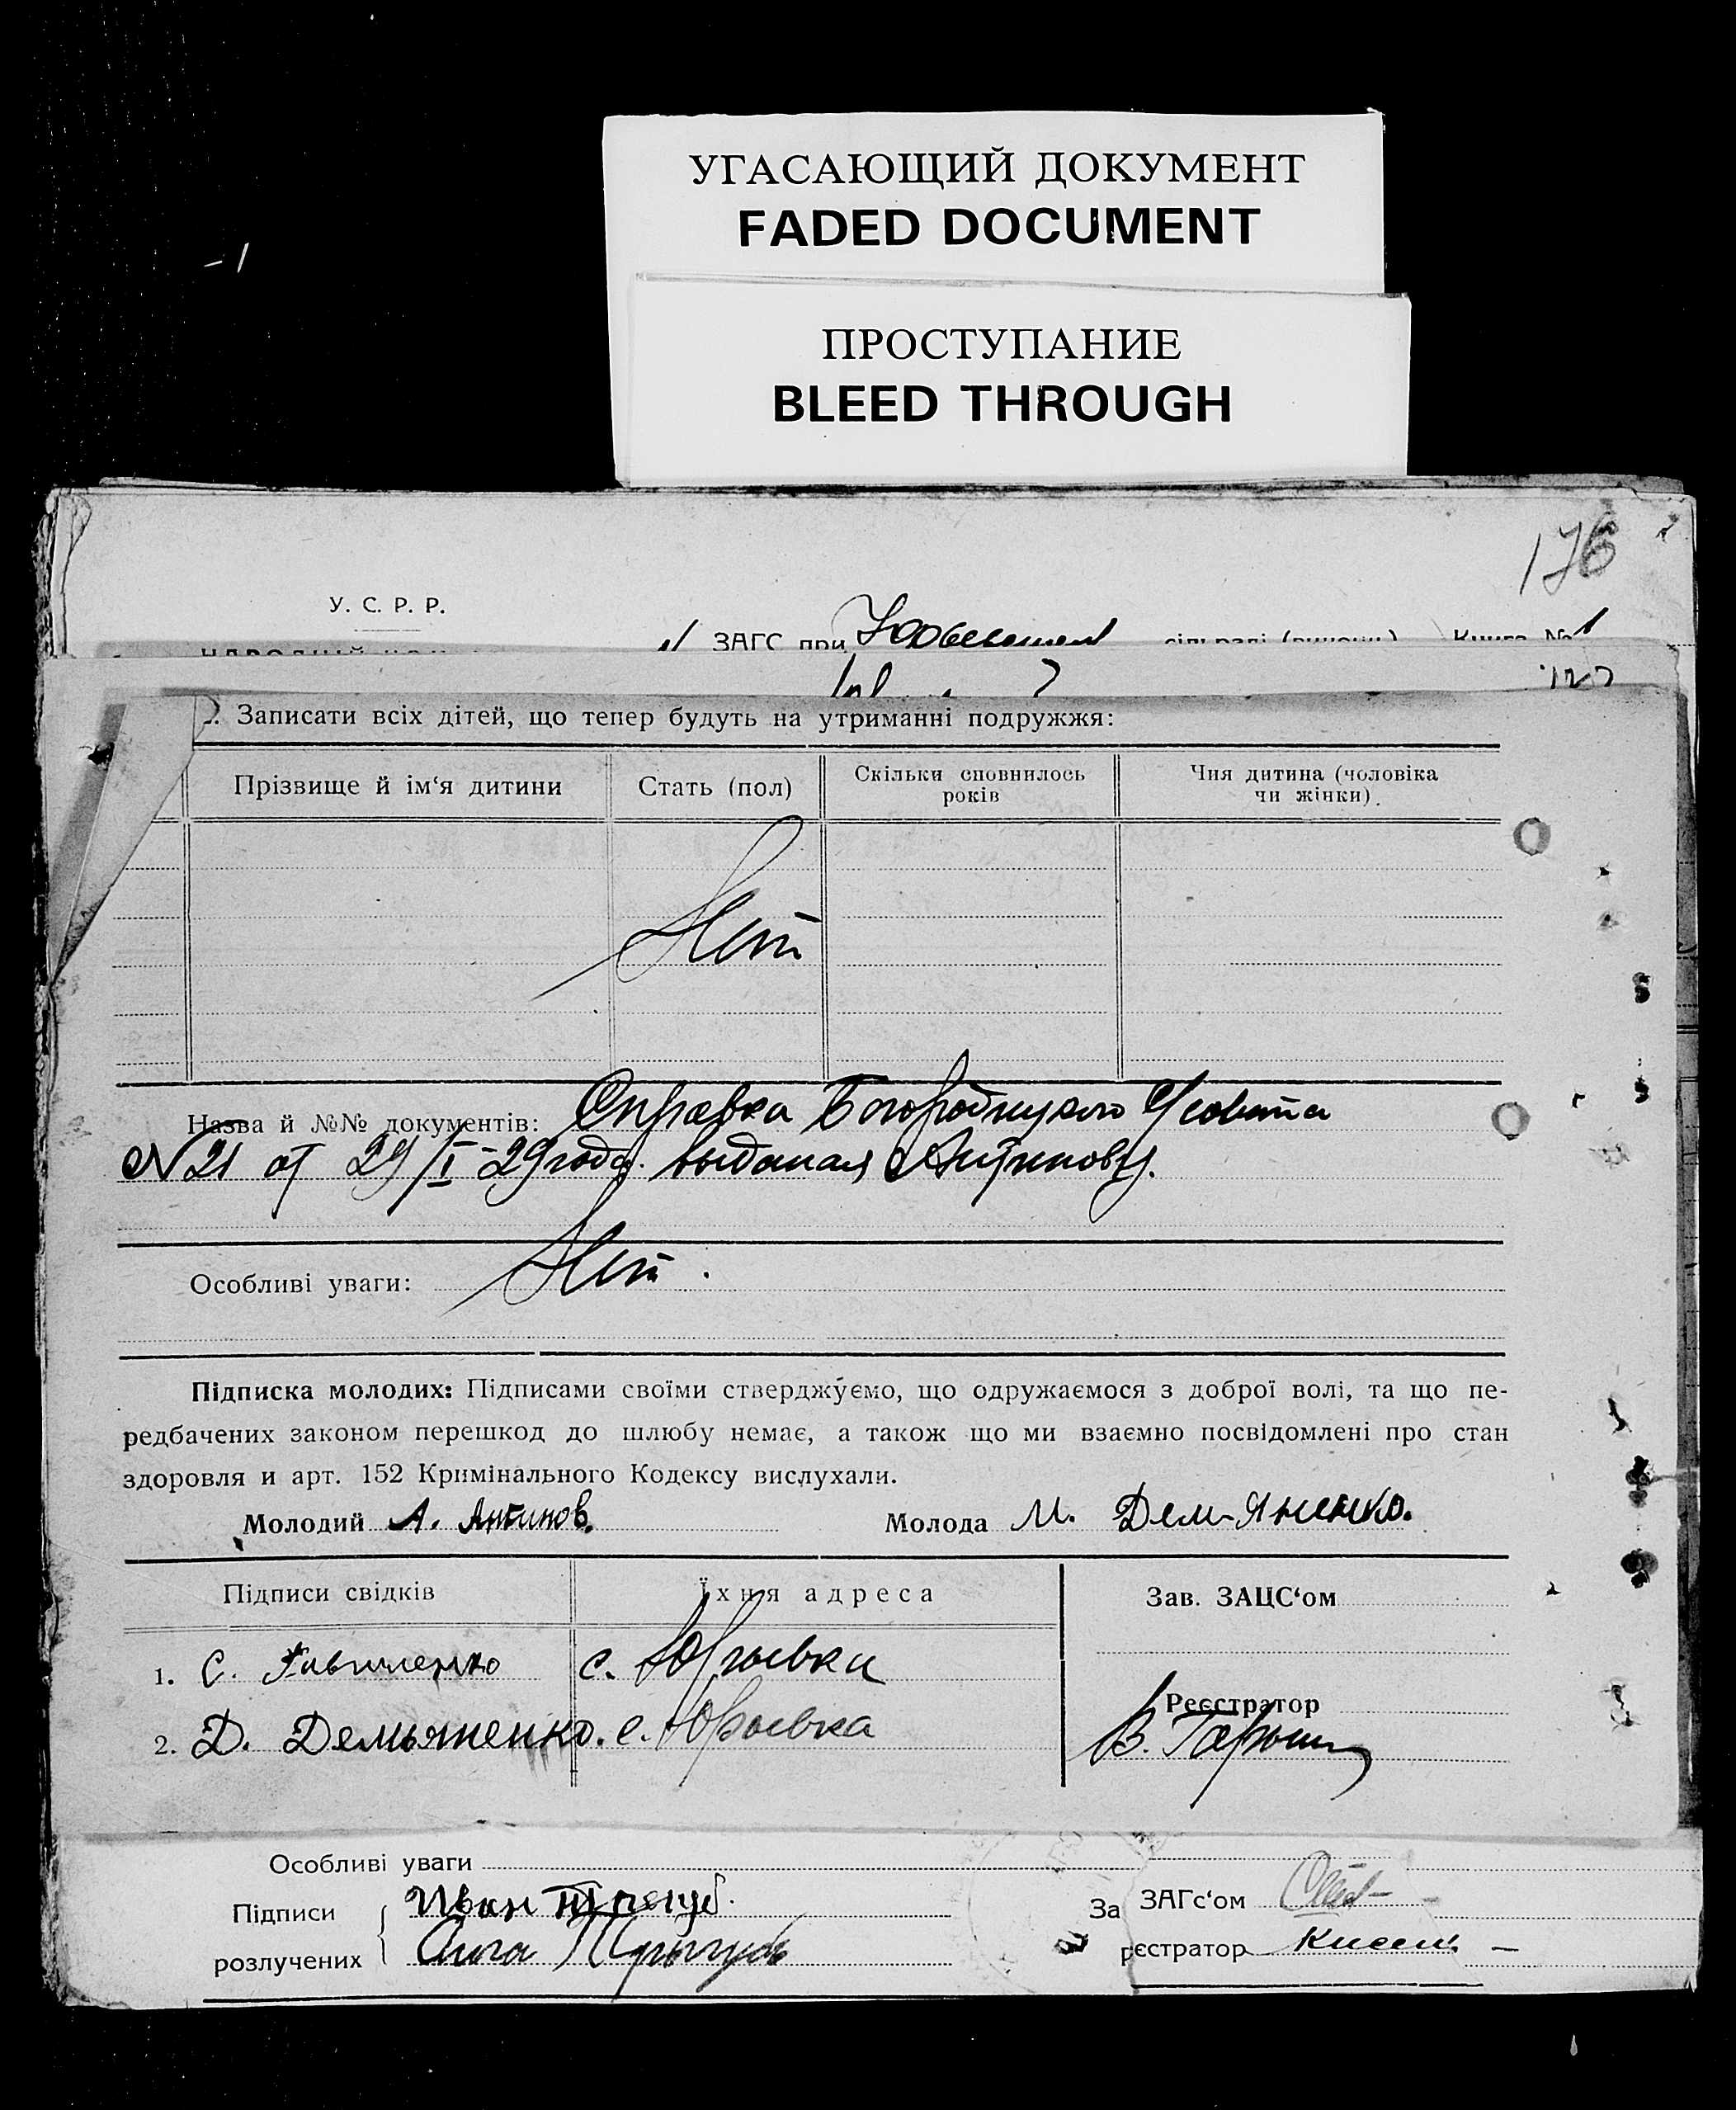 УГАСАЮЩИЙ ДОКУМЕНТ
FADED DOCUMENT
ПРОСТУПАНИЕ
BLEED THROUGH
176
У. С. Р. Р.
ЗАГС при
Книга № 1
Записати всіх дітей, що тепер будуть на утриманні подружжя:
Прізвище й ім‘я дитини
Стать (пол)
Скільки сповнилось років
Чия дитина (чоловіка чи жінки).
Нет
Назва й №№ документів: Справка Богородицкого С/совета
№ 21 от 29/I-29 года. выданая Антипову.
Особливі уваги: Нет.
Підписка молодих: Підписами своїми стверджуємо, що одружаємося з доброї волі, та що пе-
редбачених законом перешкод до шлюбу немає, а також що ми взаємно посвідомлені про стан
здоровля и арт. 152 Кримінального Кодексу вислухали.
Молодий А. Антипов. Молода М. Дем-Яненко.
Підписи свідків
Їхня адреса
Зав. ЗАЦС‘ом
1. С. с. Юрьевка
Реєстратор
2. Д. Демьяненко. с. Юрьевка
В.
Особливі уваги
Підписи розлучених
Иван
Трегуб
За
ЗАГс‘ом
рєстратор